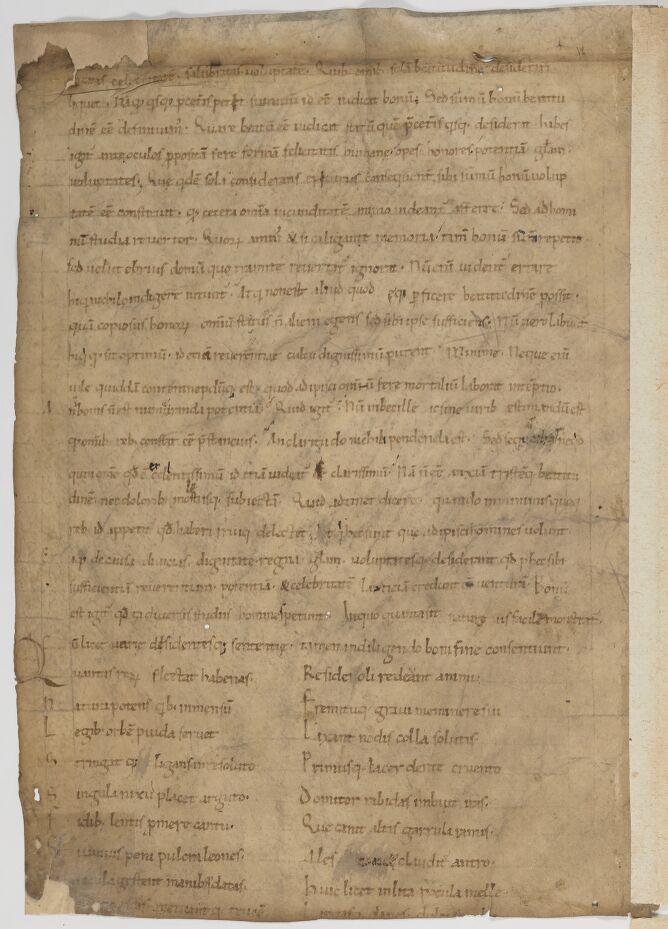 celebritas, salubritas uoluptatē. Quib; omib; solā beatitudinē desiderari
liquet. Nā qđ qsq; p cet̄is petit summū id eē iudicat bonū; Sed sūmū bonū beatitu
dinē eē definiuim'. Quare beatū eē iudicat statū quē p̄ cet̄is qsq; desiderat. Habes
igit̄ ante oculos ppositā fere formā felicitatis humane. opes. honores. potentiā. glam.
uoluptates; Que qdē sola considerans epicurus consequent̄ sibi sūmū bonū uolup
tatē eē constituit. qđ cetera omīa iucunditatē animo uideant̄ afferre. Sed ad homi
nū studia reuertor. Quorȝ anim' & si caligante memoria tam̄ bonū suū repetit
sed uelut ebrius domū quo tramite reuertat̄ ignorat. Nū enī uident̄ errare
hi qui nihilo indigere nitunt̄. Atq; non est aliud quod eque pficere beatitudinē possit.
quā copiosus bonorȝ omiū status n̄ alieni egens sed sibi ipse sufficiens. Nū uero labunt̄
hi qđ sit optimū. id etiā reuerentiae cultu dignissimū putent. Minime. Neque enī
uile quiddā contemnendūq; est. quod adipisci omiū fere mortaliū laborat intentio.
In bonis n̄ est numeranda potentia. Quid igit̄. Nū inbecille ac sine uirib; estimandū est
qđ omīb; reb; constat eē p̄stantius. An claritudo nichili pendenda est. Sed
qui eat qđ excellentissimū id etiā uideat̄ eē clarissimū. Nā n̄ eē anxiā tristēq; beatitu
dinē nec dolorib; molestiisq; subiectā. Quid adtinet dicere. quando in minimis quoq;
reb; id appetit̄ qđ haberi fruiq; delectet; Atq; hec sunt que adipisci homines uolunt
eaq; de causa diuitias. dignitates regna. glam. uoluptatesq; desiderant qđ p hec sibi
sufficientiā reuerentiam. potentiā. & celebritatē. Leticiā credunt eē uenturā. Bonū
est igit̄ qđ tā diuersis studiis homines petunt. In quo quanta sit nature uis facile monstrat̄.
cū licet uarie dissidentesq; sententie. tamen in diligendo boni fine consentiunt.
Quantas rerȝ flectat habenas.
Natura potens qib; inmensū
Legib; orbē puida seruet
Stringat q; ligans inresoluto
Singula nexu placet arguto.
Fidib; lentis pmere cantu.
Quamuis peni pulchri leones.
Vincula gestent manibq; datas.
Captent escas metuant q; trucē
Resides oli redeunt animi.
Fremituq; graui meminere sui
Laxant nodis colla solutis.
Primusq; lacer dente cruento
Domitor rabidas imbuit iras.
Que canit altis garrula ramis.
Ales caueae claudit̄ antro.
Huic licet inlita pocula melle